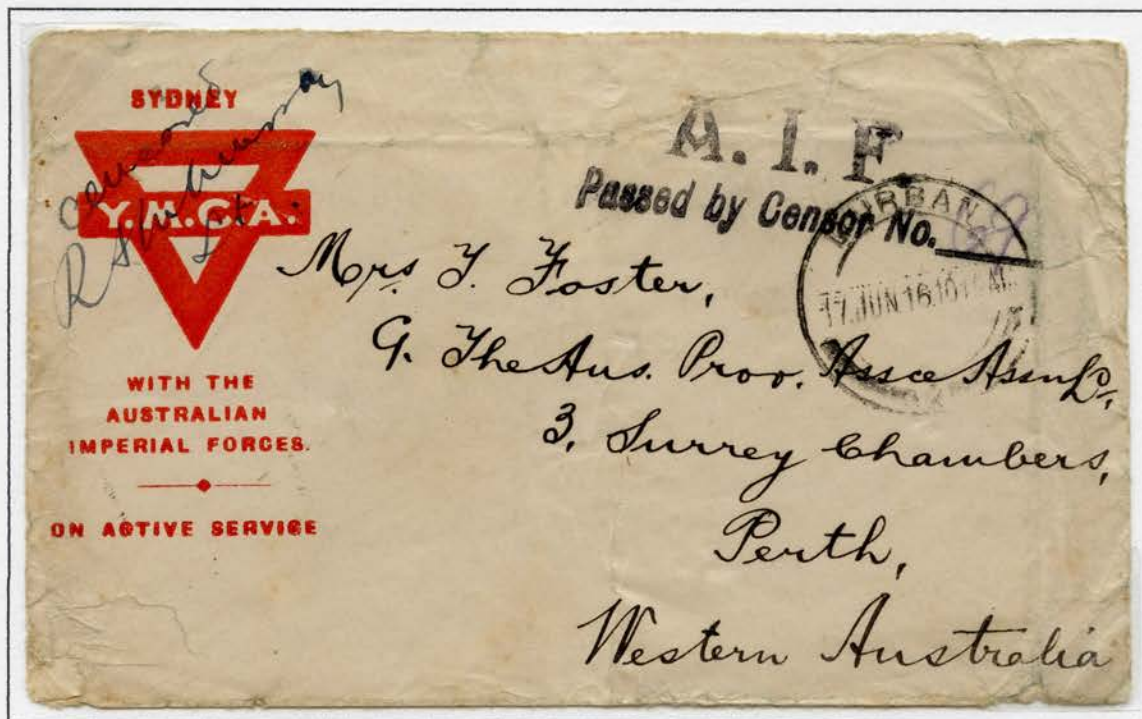 SYDNEY
censored
Y.M.C.A.
Lt.
WITH THE
AUSTRALIAN
IMPERIAL FORCES.
ON ACTIVE SERVICE
A. I. F.
Passed by Censor No.
DURBAN
17. JUN 16. 10
Mrs. T. Foster,
The Aus. Prov. Assce Assn Ld,
3, Surrey Chambers,
Perth,
Western Australia